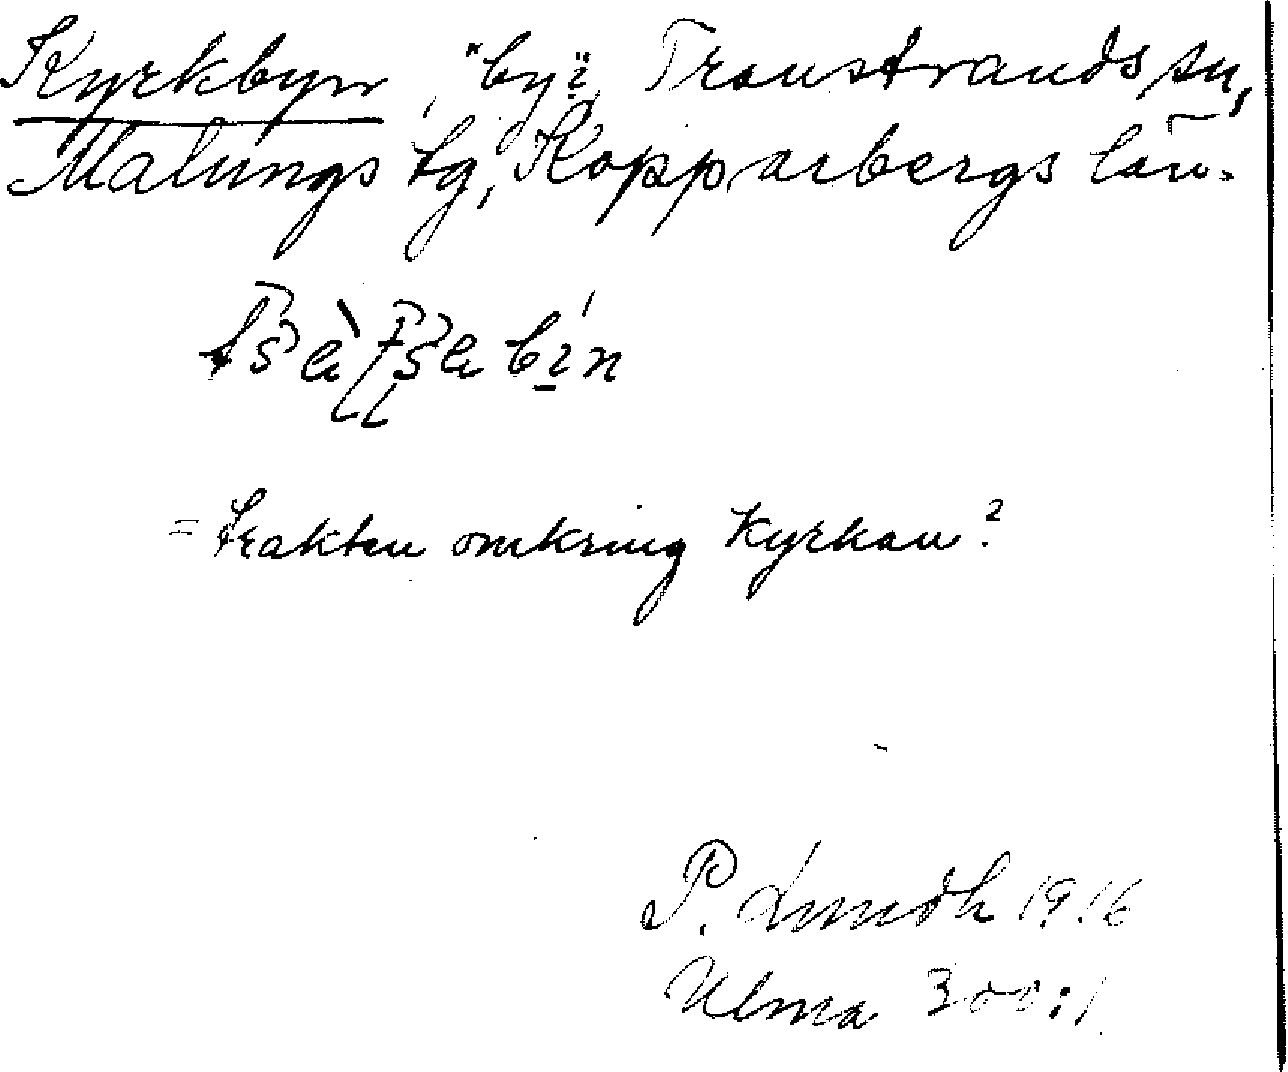 Kyrkbyn, "by", Transtrands sn,
Malungs tg, Kopparbergs län.
= trakten omkring kyrkan?
P. Lundh 1916
Ulma 300:1